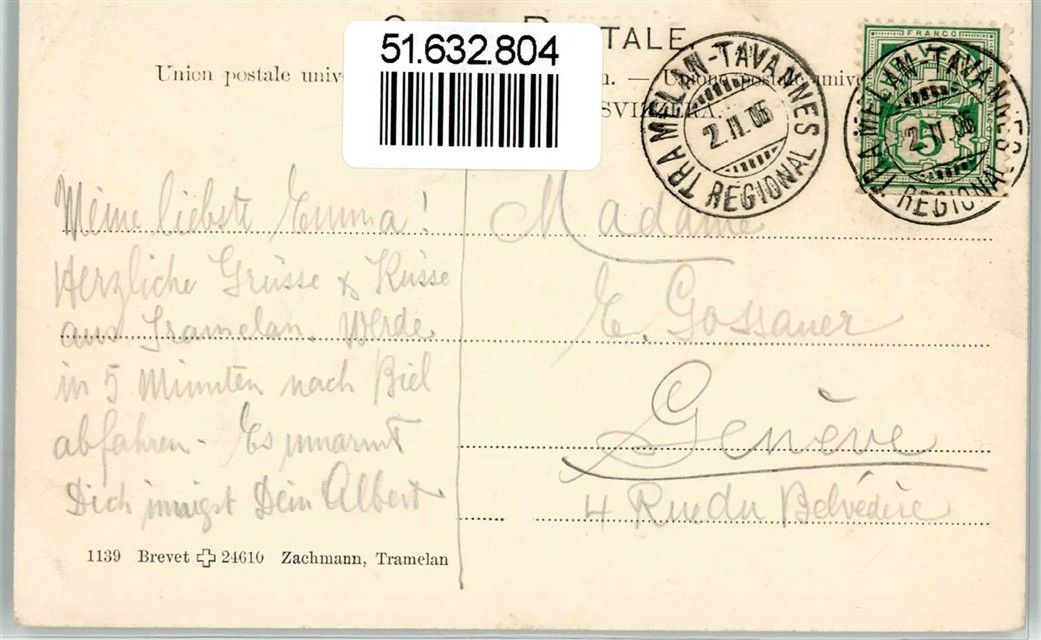 51.632.804
TALE.
Union postale unive
n. — Unione postale unive
SVIZZERA.
TRAMELAN-TAVANNES
2.II.06
REGIONAL
FRANCO
5
TRAMELAN-TAVANNES
2.II.06
REGIONAL
Meine liebste Emma!
Herzliche Grüsse & Küsse
aus Tramelan. Werde
in 5 Minuten nach Biel
abfahren. Es umarmt
Dich innigst Dein Albert
Madame
E. Gossauer
Genève
4 Rue du Belvédère
1139 Brevet 24610 Zachmann, Tramelan